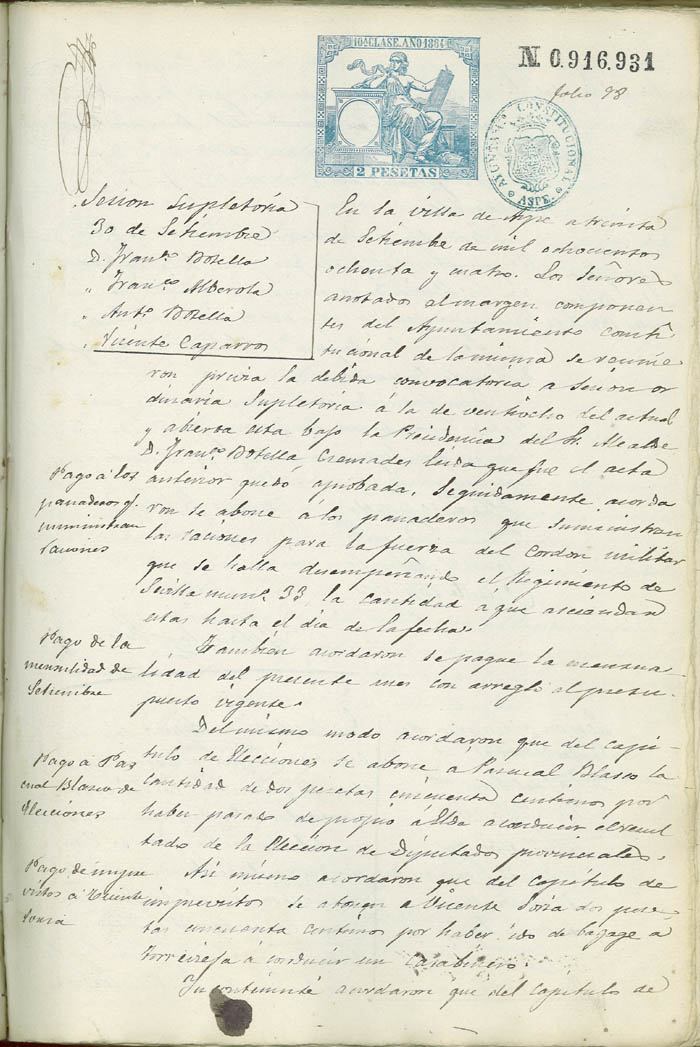 10ª CLASE. AÑO 1884
N. 0.916.931
folio 98
2 PESETAS
AYUNTAMIENTO CONSTITUCIONAL
ASPE.
Sesion Supletoria
30 de Setiembre
D. Franco. Botella
" Franco. Alberola
" Anto. Botella
" Vicente Caparros
En la villa de Aspe a treinta
de Setiembre de mil ochocientos
ochenta y cuatro. Los Señores
anotados al margen componen
tes del Ayuntamiento consti
tucional de la misma se reunie
ron previa la debida convocatoria a sesion or
dinaria Supletoria á la de veintiocho del actual
y abierta esta bajo la Presidencia del Sr. Alcalde
D. Franco. Botella Cremades leida que fue el acta
anterior quedó aprobada. Seguidamente acorda
ron se abone á los panaderos que suministran
las raciones para la fuerza del cordon militar
que se halla desempeñando el Regimiento de
Sevilla numo. 33 la cantidad á que asciendan
estas hasta el dia de la fecha.
Pago á los
panaderos q.
suministran
raciones
Tambien acordaron se pague la mensua
lidad del presente mes con arreglo al presu-
puesto vigente.
Pago de la
mensualidad de
Setiembre
Del mismo modo acordaron que del capi-
tulo de Elecciones se abone a Pascual Blasco la
cantidad de dos pesetas cincuenta centimos por
haber pasado de propio á Elda a conducir el resul
tado de la Eleccion de Diputados provinciales.
Pago á Pas
cual Blasco de
Elecciones
Asi mismo acordaron que del capítulo de
imprevistos se abonen a Vicente Soria dos pese
tas cincuenta centimos por haber ido de bagage a
Torrevieja á conducir un Carabinero.
Pago de impre
vistos á Vicente
Soria
In continenti acordaron que del capitulo de